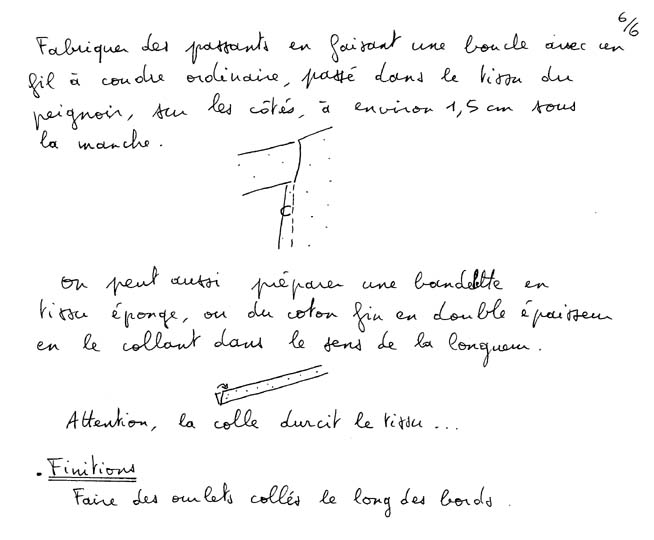 6/6
Fabriquer des passants en faisant une boucle avec un
fil à coudre ordinaire, passé dans le tissu du
peignoir, sur les côtés, à environ 1,5 cm sous
la manche.
On peut aussi préparer une bandelette en
tissu éponge, ou du coton fin en double épaisseur
en le collant dans le sens de la longueur.
Attention, la colle durcit le tissu...
. Finitions
Faire des ourlets collés le long des bords.